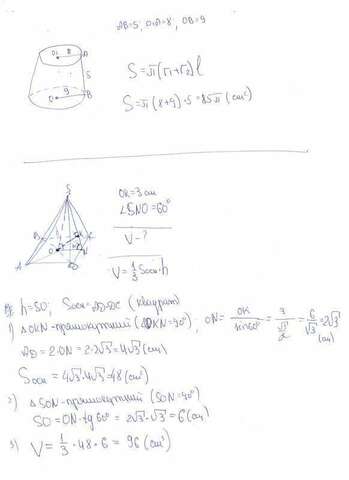 AB=5, O₁A=8, OB=9
O₁ 8 A
5
9
O B
S=π(r₁+r₂)l
S=π(8+9)·5=85π (см²)
S
OK=3 см
∠SNO=60°
V-?
V=1/3 Sосн·h
B C K O N A D
h=SO; Sосн=AD·DC (квадрат)
1) △OKN-прямокутний (∠OKN=90°), ON=OK/sin60°=3/(√3/2)=6/√3=2√3 (см)
AD=2·ON=2·2√3=4√3 (см)
Sосн=4√3·4√3=48 (см²)
2) △SON-прямокутний (SON=90°)
SO=ON·tg60°=2√3·√3=6 (см)
3) V=1/3·48·6=96 (см³)